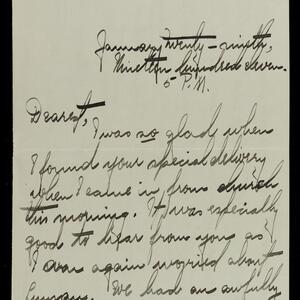 January twenty-ninth,
Nineteen hundred seven.
5 P.M.
Dearest,
I was so glady when
I found your special delivery
when I came in from church
this morning. It was especially
good to hear from you as
I was again worried about
We had an awfully